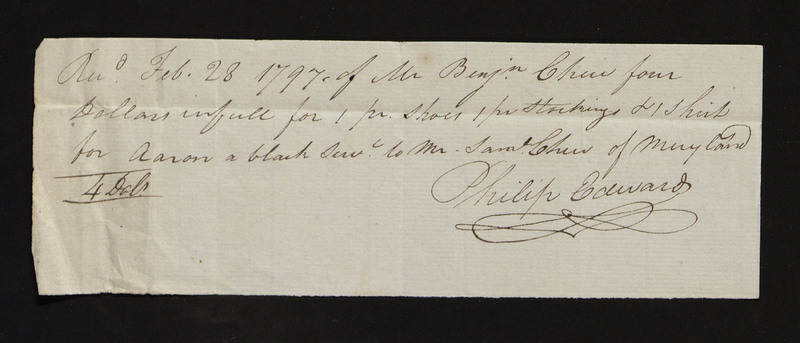 Recd Feb. 28 1797. of Mr Benjn Chew four
Dollars in full for 1 pr. Shoes 1 pr Stockings & 1 Shirt
for Aaron a black Servt to Mr. Saml. Chew of Maryland
4 Dols. Philip Edwards